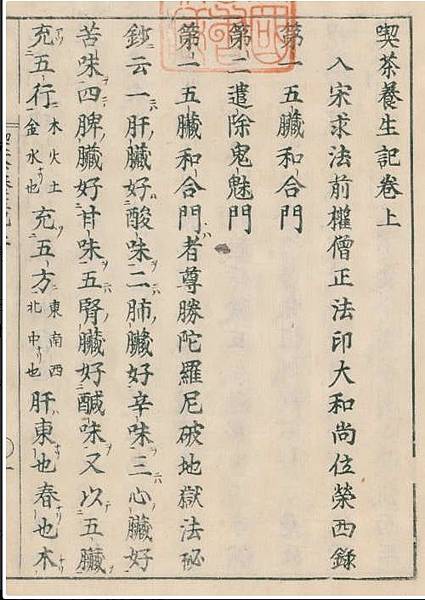 喫茶養生記巻上
入宋求法前權僧正法印大和尚位榮西錄
第一五臟和合門
第二遣除鬼魅門
第一五臟和合門者尊勝陀羅尼破地獄法秘
鈔云一肝臟好酸味二肺臟好辛味三心臟好
苦味四脾臟好甘味五腎臟好醎味又以五臟
充五行木火土金水也充五方東南西北中也肝東也春也木